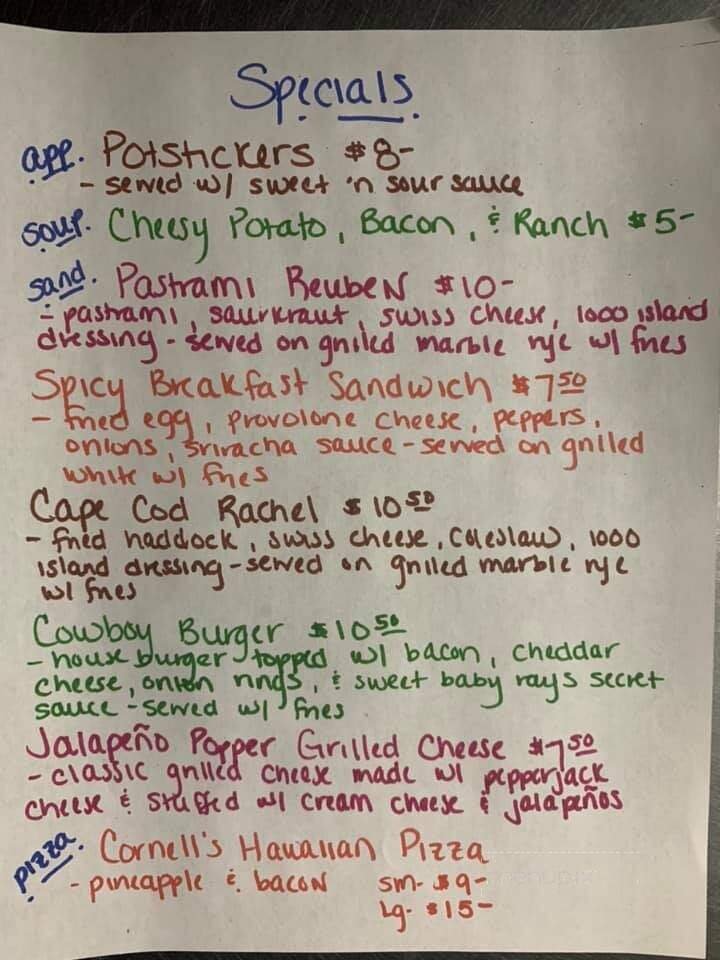 Specials
app. Potstickers $8-
- served w/ sweet 'n sour sauce
soup. Cheesy Potato, Bacon, & Ranch $5-
sand. Pastrami Reuben $10-
- pastrami, saurkraut, swiss cheese, 1000 island
dressing - served on grilled marble rye w/ fries
Spicy Breakfast Sandwich $7 50
- fried egg, provolone cheese, peppers,
onions, sriracha sauce - served on grilled
white w/ fries
Cape Cod Rachel $10 50
- fried haddock, swiss cheese, coleslaw, 1000
island dressing - served on grilled marble rye
w/ fries
Cowboy Burger $10 50
- house burger topped w/ bacon, cheddar
cheese, onion rings, & sweet baby rays secret
sauce - served w/ fries
Jalapeño Popper Grilled Cheese $7 50
- classic grilled cheese made w/ pepperjack
cheese & stuffed w/ cream cheese & jalapeños
pizza. Cornell's Hawaiian Pizza
- pineapple & bacon sm- $9-
Lg- $15-